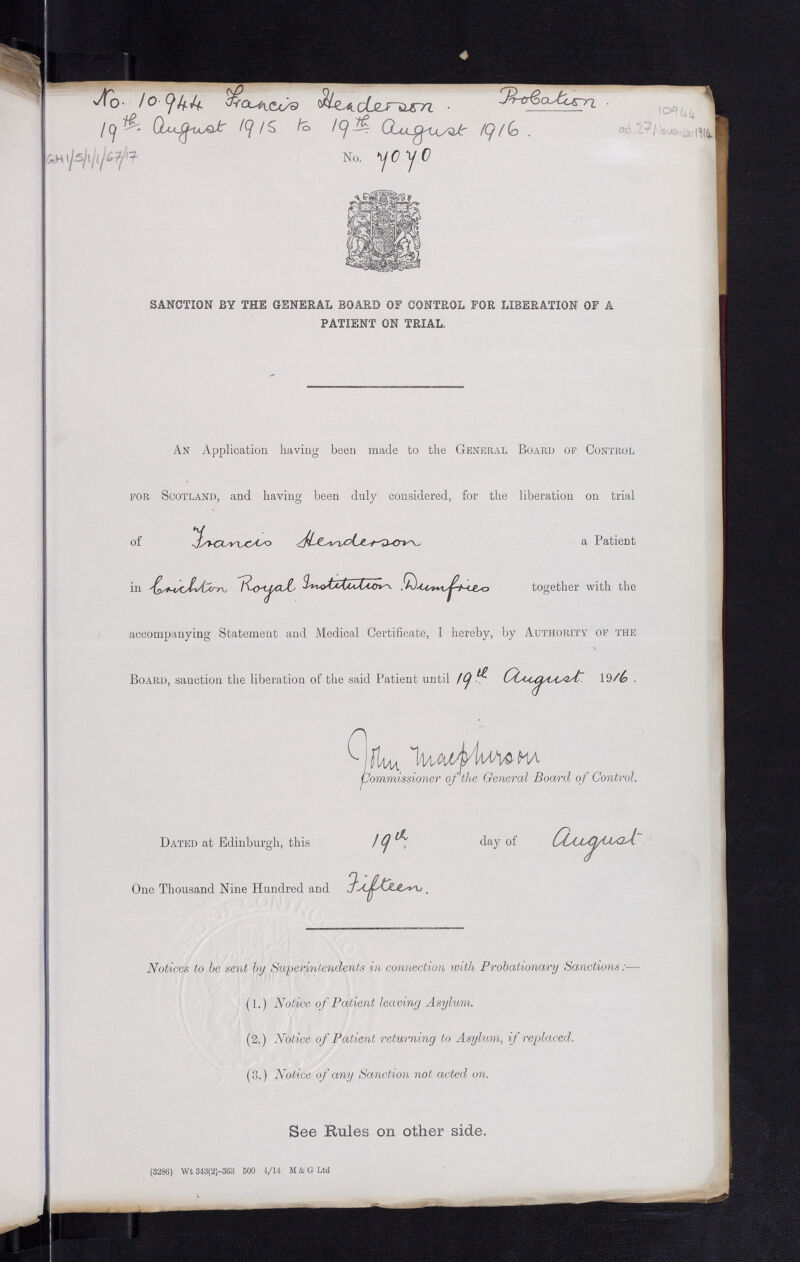 No. 10.944 Francis Henderson. Probation.
10944
19th. August 1915 to 19th August 1916.
ad. 27 November 1914
No. 7070
SANCTION BY THE GENERAL BOARD OF CONTROL FOR LIBERATION OF A
PATIENT ON TRIAL.
AN Application having been made to the GENERAL BOARD OF CONTROL
FOR SCOTLAND, and having been duly considered, for the liberation on trial
of Francis Henderson a Patient
in Crichton Royal Institution. Dumfries together with the
accompanying Statement and Medical Certificate, I hereby, by AUTHORITY OF THE
BOARD, sanction the liberation of the said Patient until 19th August 1916.
John Macpherson
Commissioner of the General Board of Control.
DATED at Edinburgh, this 19th day of August
One Thousand Nine Hundred and Fifteen.
Notices to be sent by Superintendents in connection with Probationary Sanctions:—
(1.) Notice of Patient leaving Asylum.
(2.) Notice of Patient returning to Asylum, if replaced.
(3.) Notice of any Sanction not acted on.
See Rules on other side.
(3286) Wt 343(2)-363 500 4/14 M & G Ltd